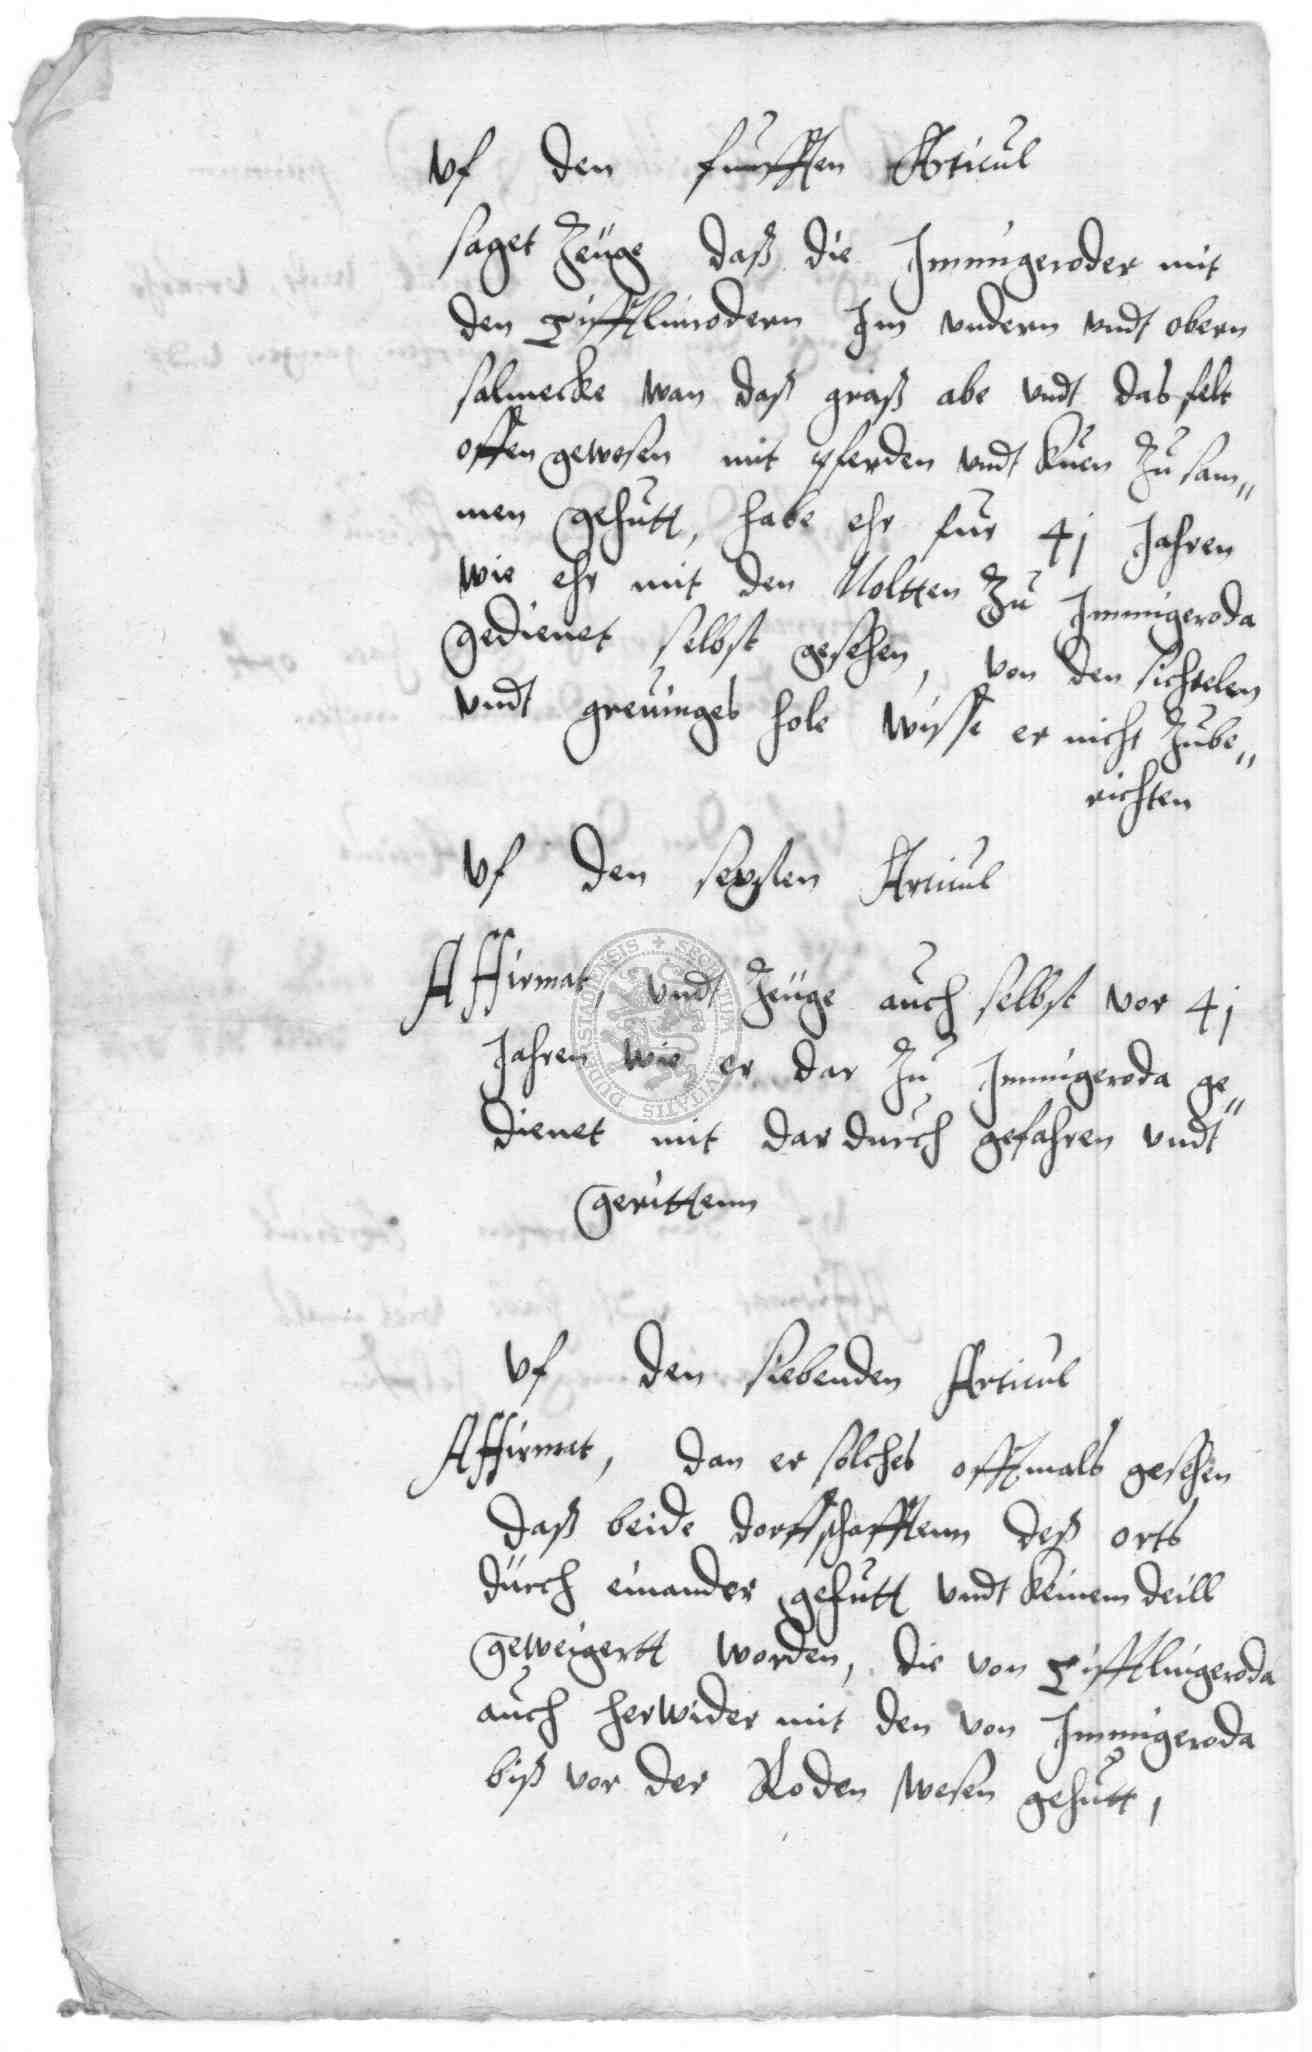 vf den funfften Articul
saget Zeüge daß die Immigeroder mit
den Tifftlinrodern Im vndern vndt obern
salmecke wan daß graß abe vndt das felt
offen gewesen mit pferden vndt Kuen Zu sam„
men gehutt, habe ehr fur 4j Jahren
wie ehr mit den Noltten Zu Immigeroda
gedienet selbst gesehen, von den sichtelen
vndt greuinges hole wisse er nicht Zube„
richten
vf den sexsten Articul
Affirmat, vndt Zeüge auch selbst vor 4j
Jahren wie er dar Zu Immigeroda ge„
dienet mit dar durch gefahren vndt
gerittenn
vf den siebenden Articul
Affirmat, dan er solches offtmals gesehen
daß beide dorffschafftenn deß orts
dürch einander gehutt vndt Keinem deill
geweigertt worden, die von Tifftlingeroda
auch herwider mit den von Immigeroda
biß vor der Roden wesen gehutt,
DUDERSTADENSIS + SECRETUM CIVITATIS